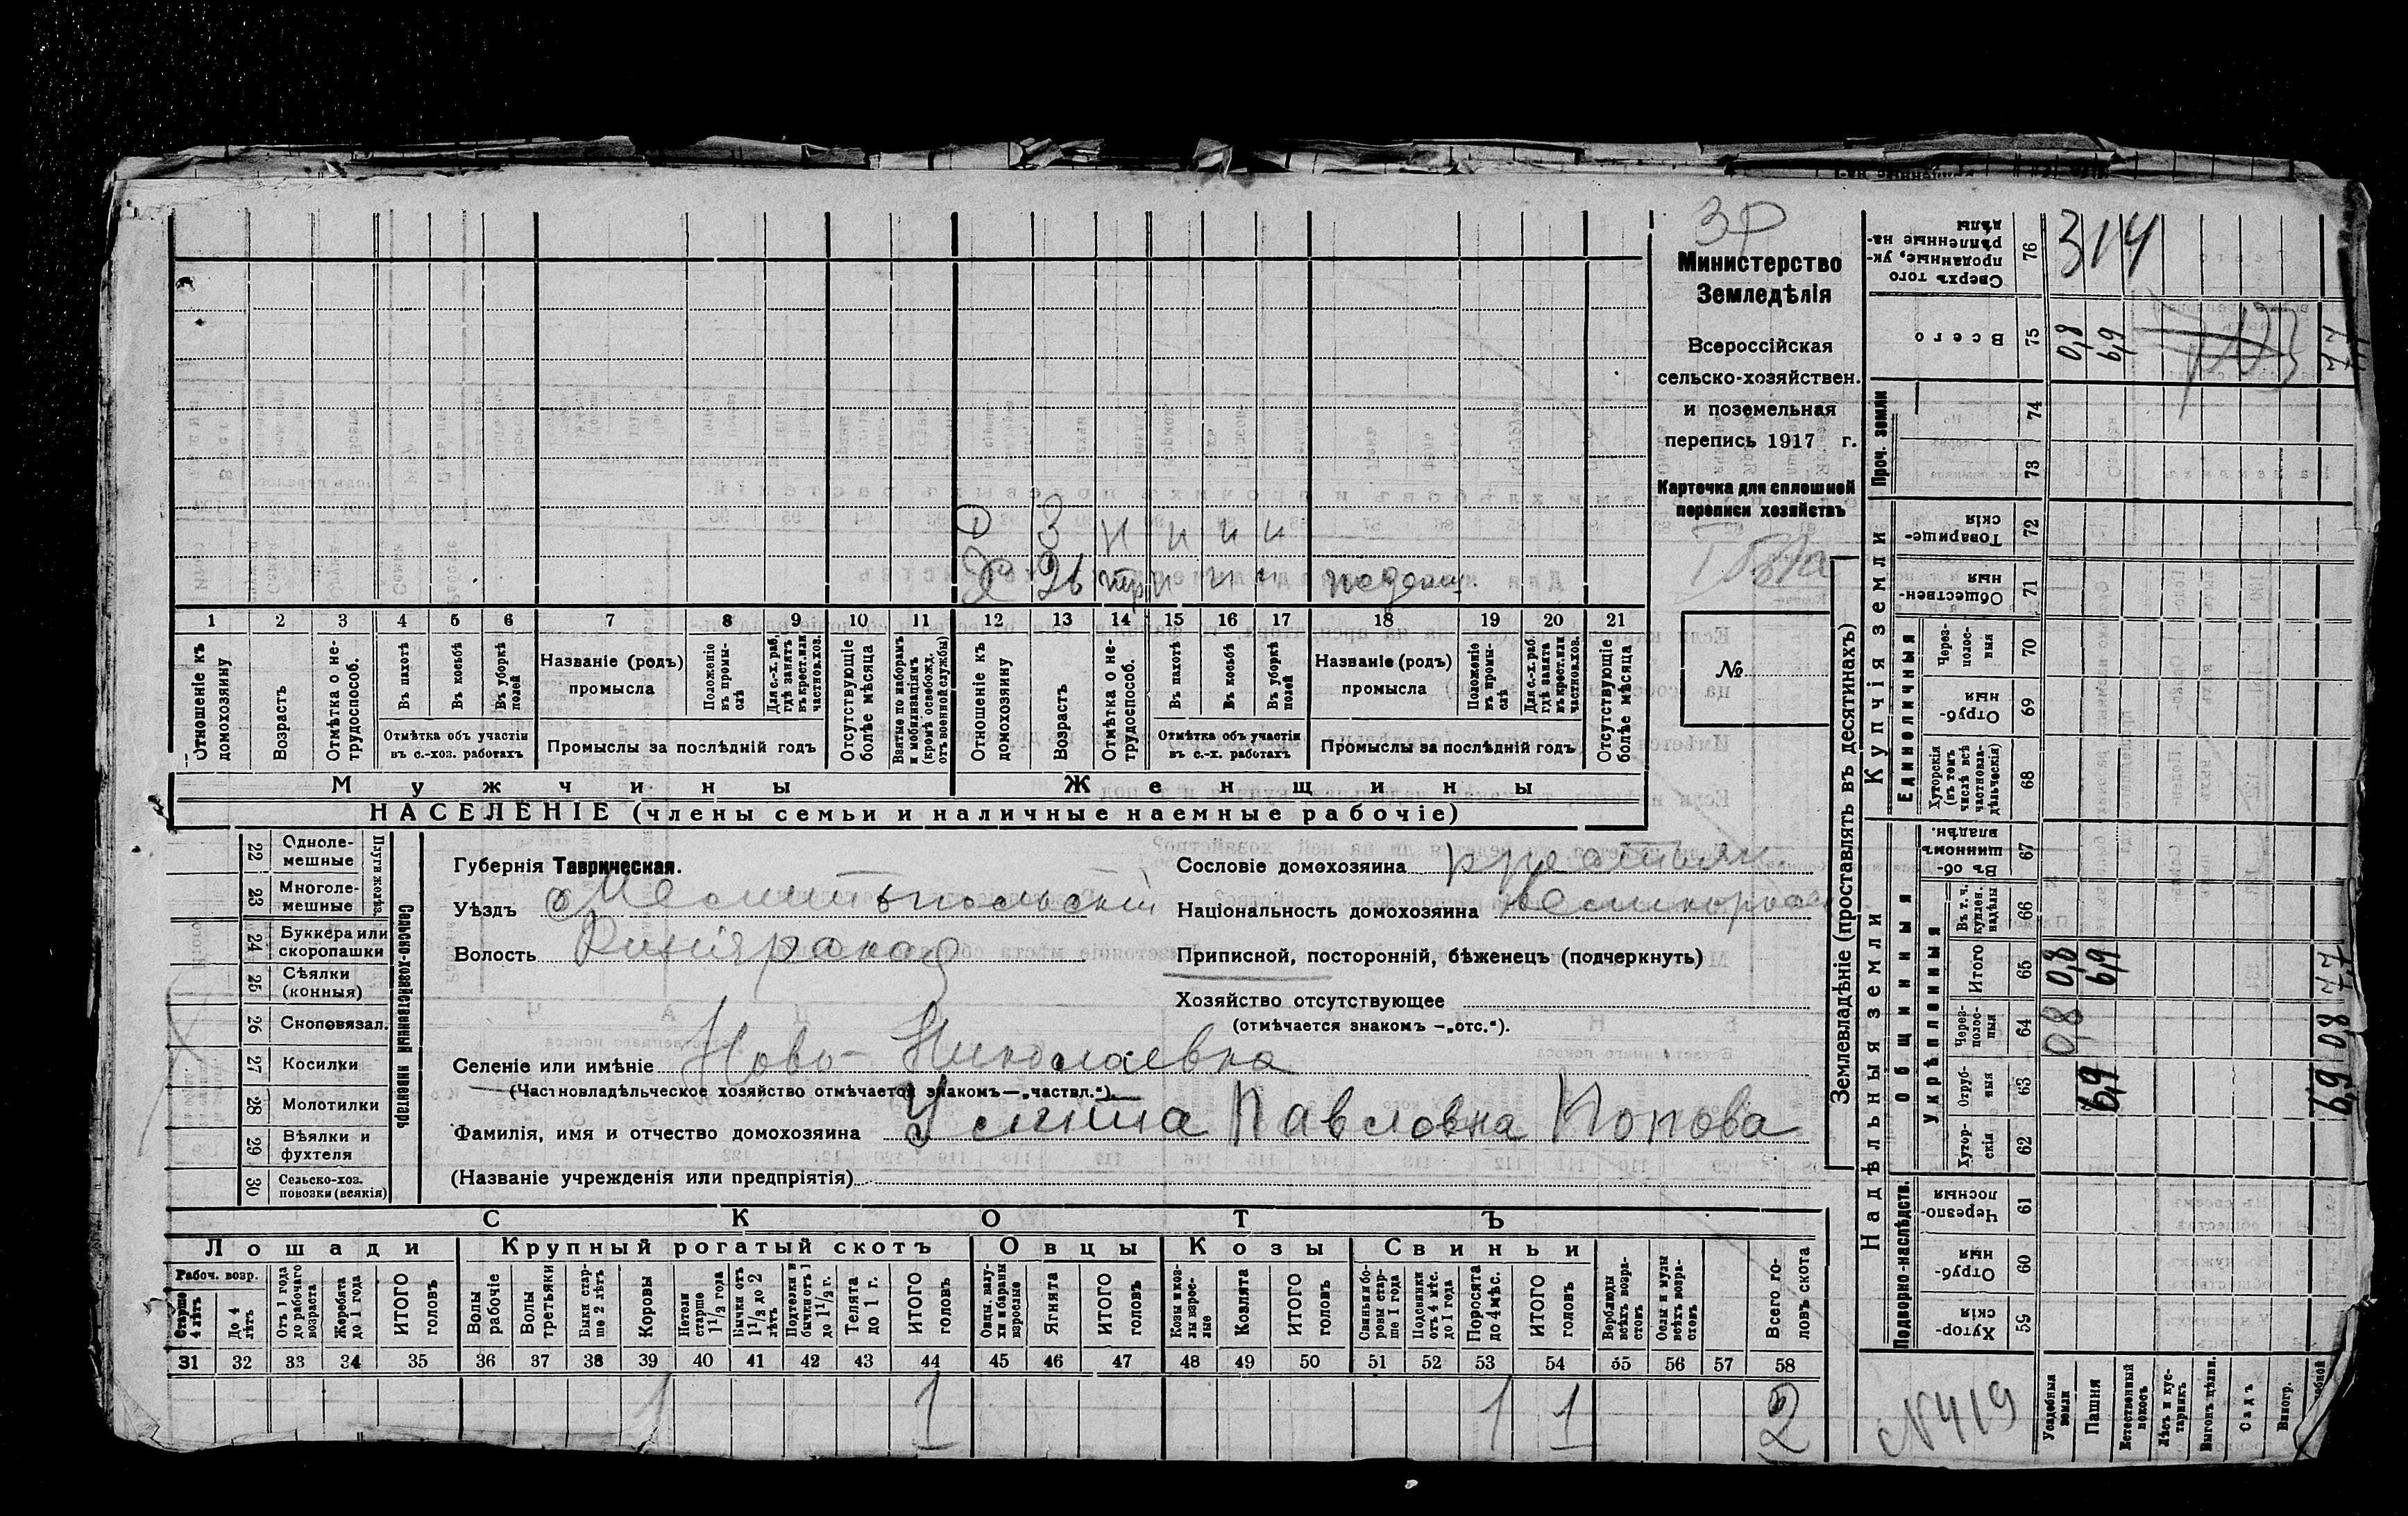 Министерство
Земледѣлія
Всероссійская
сельско-хозяйствен.
и поземельная
перепись 1917 г.
Карточка для сплошной
переписи хозяйствъ
№
Д 3 н н н н
Х 26 н н н поденщ.
1 2 3 4 5 6 7 8 9 10 11 12 13 14 15 16 17 18 19 20 21
Отношеніе къ домохозяину
Возрастъ
Отмѣтка о не-трудоспособ.
Въ пахотѣ
Въ косьбѣ
Въ уборкѣ полей
Отмѣтка объ участіи въ с.-хоз. работахъ
Названіе (родъ) промысла
Положеніе въ промы-слѣ
Для с.-х. раб. гдѣ занятъ въ крест. или частнов. хоз.
Промыслы за послѣдній годъ
Отсутствующіе болѣе мѣсяца
Взятые по наборамъ и мобилизаціямъ (кромѣ освобожд. отъ военной службы)
Отношеніе къ домохозяину
Возрастъ
Отмѣтка о не-трудоспособ.
Въ пахотѣ
Въ косьбѣ
Въ уборкѣ полей
Отмѣтка объ участіи въ с.-х. работахъ
Названіе (родъ) промысла
Положеніе въ промы-слѣ
Для с.-х. раб. гдѣ занята въ крест. или частнов. хоз.
Промыслы за послѣдній годъ
Отсутствующіе болѣе мѣсяца
Мужчины
Женщины
НАСЕЛЕНІЕ (члены семьи и наличные наемные рабочіе)
Сельско-хозяйственный инвентарь
Плуги желѣз.
22 Одноле-мешные
23 Многоле-мешные
24 Буккера или скоропашки
25 Сѣялки (конныя)
26 Сноповязал.
27 Косилки
28 Молотилки
29 Вѣялки и фухтеля
30 Сельско-хоз. повозки (всякія)
Губернія Таврическая.
Уѣздъ Мелитопольскій
Волость
Селеніе или имѣніе Ново-Николаевка
(Частновладѣльческое хозяйство отмѣчается знакомъ—„частвл.“).
Фамилія, имя и отчество домохозяина Улита Павловна Попова
(Названіе учрежденія или предпріятія)
Сословіе домохозяина крестьян
Національность домохозяина Великоросс
Приписной, посторонній, бѣженецъ (подчеркнуть)
Хозяйство отсутствующее
(отмѣчается знакомъ —„отс.“).
СКОТЪ
Лошади
Крупный рогатый скотъ
Овцы
Козы
Свиньи
Рабоч. возр.
Старше 4 лѣтъ
До 4 лѣтъ
Отъ 1 года до рабочаго возраста
Жеребята до 1 года
ИТОГО головъ
Волы рабочіе
Волы третьяки
Быки стар-ше 2 лѣтъ
Коровы
Нетели старше 1½ года
Бычки отъ 1½ до 2 лѣтъ
Подтелки и бычки отъ 1 до 1½ г.
Телята до 1 г.
ИТОГО головъ
Овцы, валу-хи и бараны взрослые
Ягнята
ИТОГО головъ
Козы и коз-лы взрос-лые
Козлята
ИТОГО головъ
Свиньи и бо-ровы стар-ше 1 года
Подсвинки отъ 4 мѣс. до 1 года
Поросята до 4 мѣс.
ИТОГО головъ
Верблюды всѣхъ возра-стовъ
Ослы и мулы всѣхъ возра-стовъ
Всего го-ловъ скота
31 32 33 34 35 36 37 38 39 40 41 42 43 44 45 46 47 48 49 50 51 52 53 54 55 56 57 58
1 1 1 1 2
Землевладѣніе (проставлять въ десятинахъ)
Сверхъ того проданные, ук-рѣпленные на-дѣлы 76 314
Всего 75 0,8 6,9 7,7
Проч. земли
74
73
Купчія земли
Товарище-скія 72
Обществен-ныя 71
Единоличныя
Через-полос-ныя 70
Отруб-ныя 69
Хуторскія (въ томъ числѣ всѣ частновла-дѣльческія) 68
Надѣльныя земли
Общинныя
Въ об-щинномъ владѣн. 67
Укрѣпленныя
Въ т. ч. куплен. надѣлы 66
Итого 65 0,8 6,9 7,7
Через-полос-ныя 64 0,8 0,8
Отруб-ныя 63 6,9 6,9
Хутор-скія 62
Подворно-наслѣдств.
Черезпо-лосныя 61
Отруб-ныя 60
Хутор-скія 59
Усадебныя земли
Пашня
Естественный покосъ
Лѣсъ и кус-тарникъ
Выгонъ, цѣлин.
Садъ
Виногр.
N419